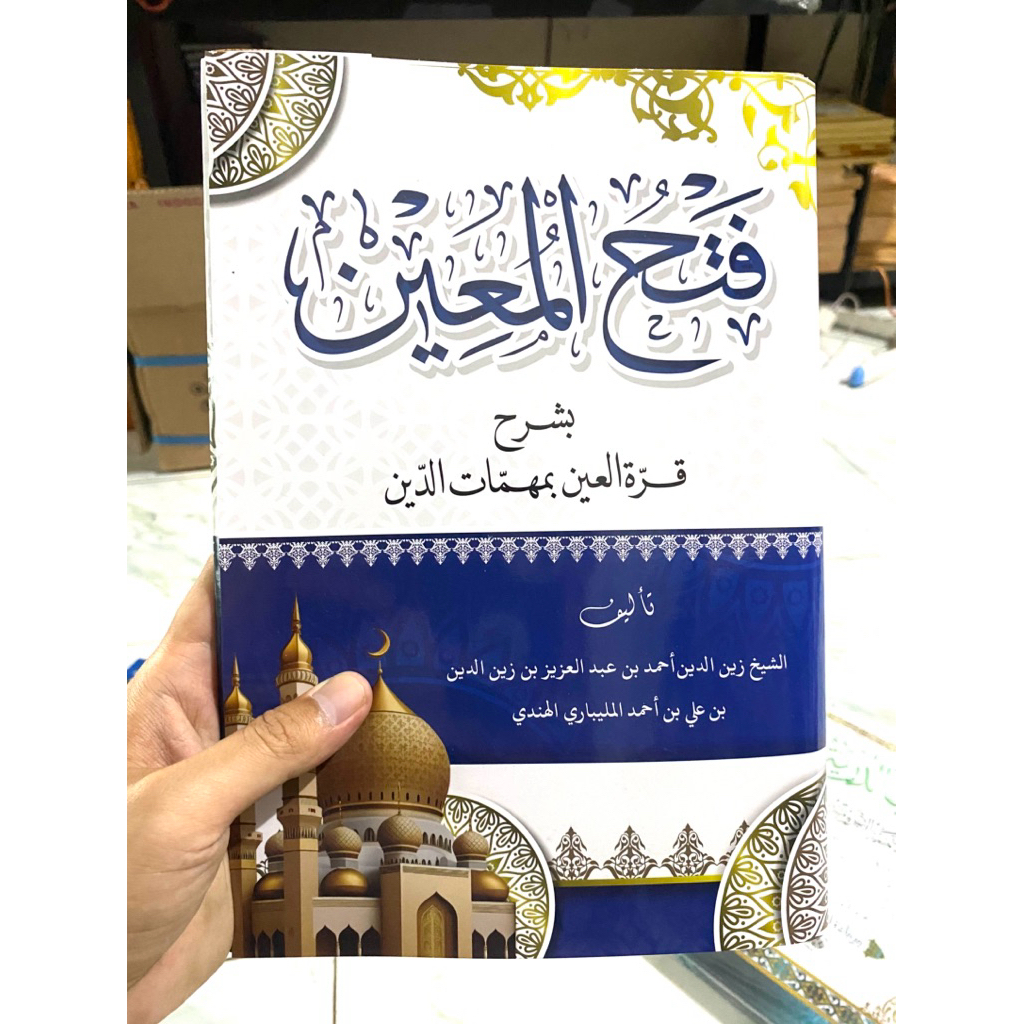 فَتْحُ المُعِيْن
بشرح
قرّة العين بمهمّات الدّين
تأليف
الشيخ زين الدين أحمد بن عبد العزيز بن زين الدين
بن علي بن أحمد المليباري الهندي